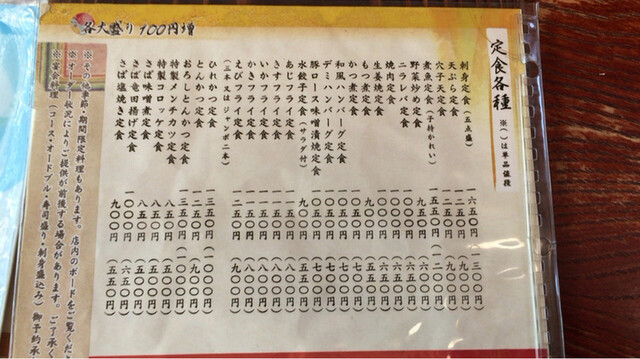 定食各種 ※（ ）は単品値段
刺身定食（五点盛） 一六五〇円（一三〇〇円）
天ぷら定食 一二五〇円（九〇〇円）
穴子天定食 一二五〇円（九〇〇円）
煮魚定食（子持かれい） 一五五〇円（一二〇〇円）
野菜炒め定食 九五〇円（六〇〇円）
ニラレバ定食 一〇〇〇円（六五〇円）
焼肉定食 一〇〇〇円（六五〇円）
生姜焼定食 一〇〇〇円（六五〇円）
もつ煮定食 九〇〇円（五五〇円）
かつ煮定食 一〇〇〇円（六五〇円）
和風ハンバーグ定食 一〇五〇円（七〇〇円）
デミハンバーグ定食 一〇五〇円（七〇〇円）
豚ロース味噌漬焼定食 一〇五〇円（七〇〇円）
水餃子定食（サラダ付） 九〇〇円（五五〇円）
あじフライ定食 一一五〇円（八〇〇円）
きすフライ定食 一一五〇円（八〇〇円）
いかフライ定食 一一五〇円（八〇〇円）
かきフライ定食 一一五〇円（八〇〇円）
えびフライ定食 一二五〇円（九〇〇円）
（三本又はジャンボ二本）
ひれかつ定食 一三五〇円（一〇〇〇円）
とんかつ定食 一二五〇円（九〇〇円）
おろしとんかつ定食 一三五〇円（一〇〇〇円）
特製メンチカツ定食 八五〇円
特製コロッケ定食 八五〇円
さば味噌煮定食 八五〇円
さば竜田揚げ定食 一〇〇〇円（六五〇円）
さば塩焼き定食 九〇〇円（五五〇円）
各大盛り100円増
※その他季節・期間限定料理もあります。店内のボードをご覧くだ
※オーダー状況によりご提供が前後する場合があります。ご了承く
※宴会料理（コース・オードブル・寿司盛り・刺身盛込み）御予約承